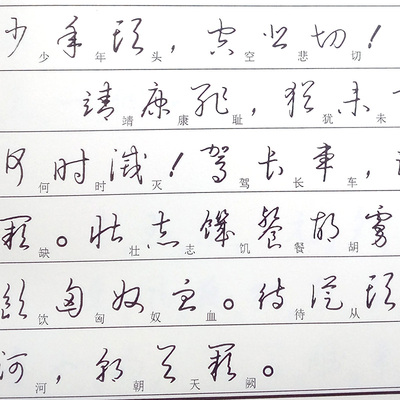 少年頭，空悲切！
少年头空悲切
靖康耻，猶未
靖康耻犹未
何时滅！駕长車，
何时灭驾长车
缺。壮志饑餐胡虜
缺壮志饥餐胡
飲匈奴血。待從頭
饮匈奴血待从
河，朝天闕。
河朝天阙